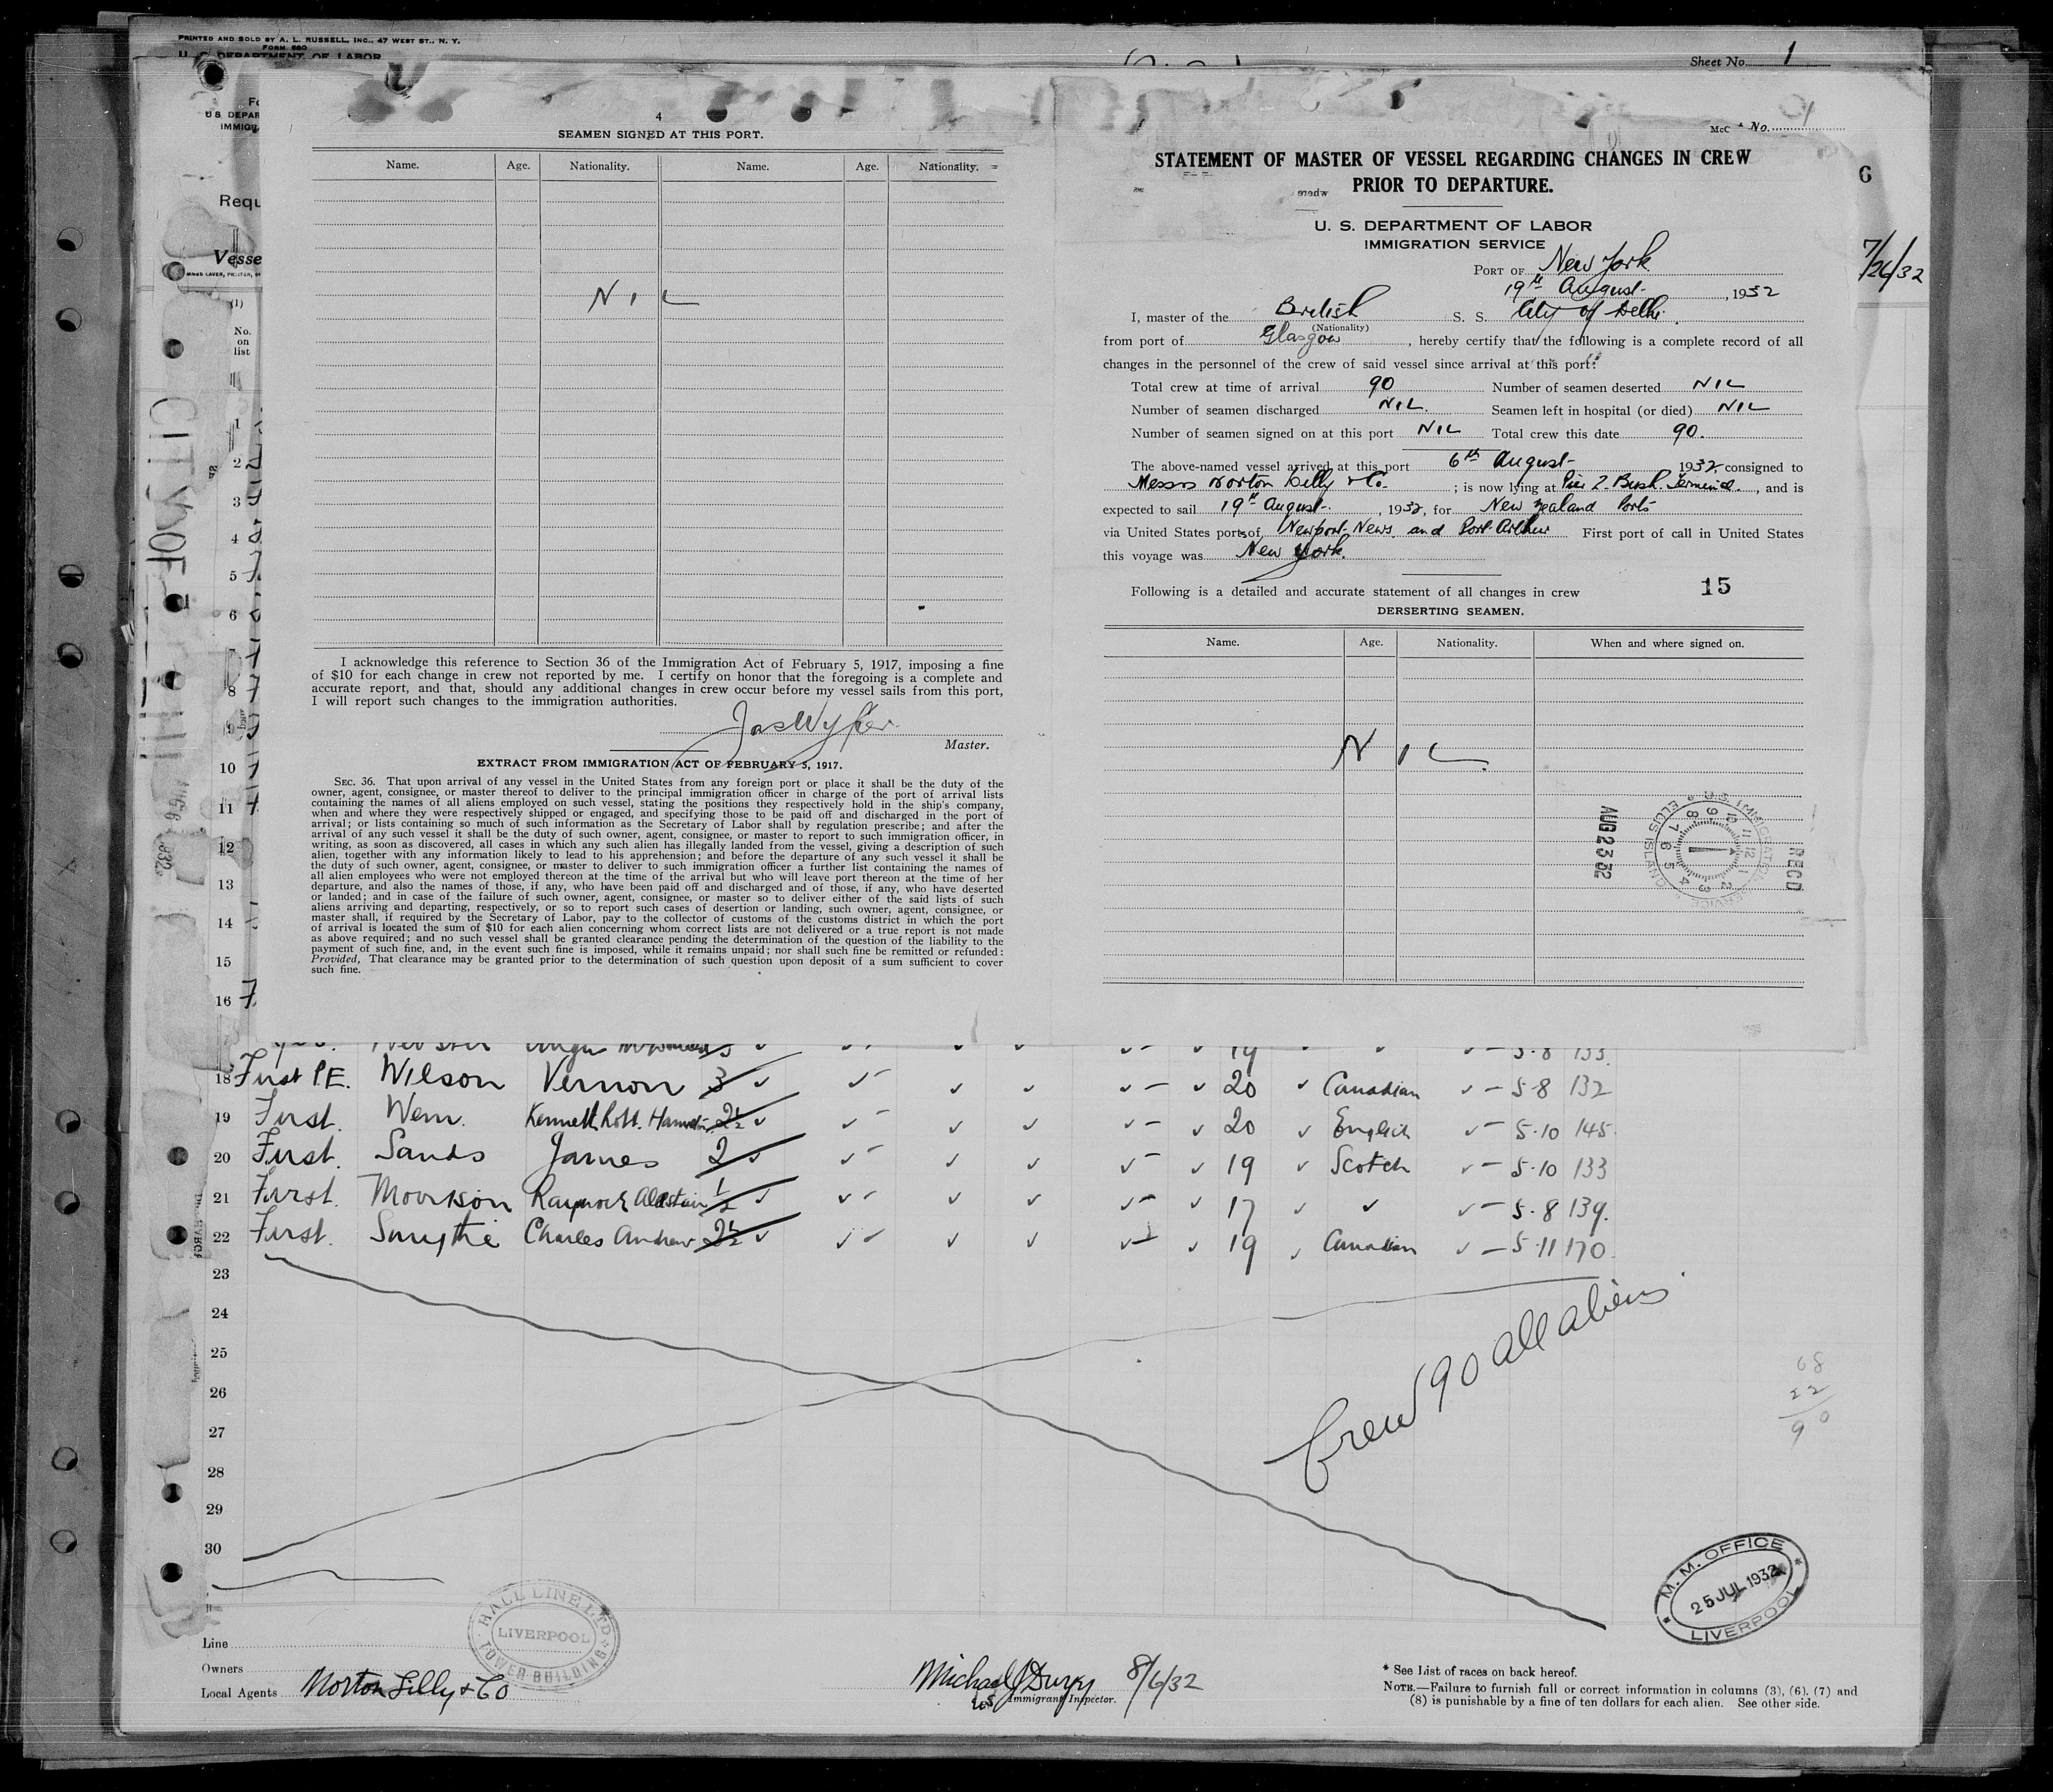 PRINTED AND SOLD BY A. L. RUSSELL, INC., 47 WEST ST., N. Y.
FORM 680
U. S. DEPARTMENT OF LABOR
Sheet No. 1
U S. DEPAR
IMMIGR
Requ
Vesse
(1)
No.
on
list
CITY OF
4
SEAMEN SIGNED AT THIS PORT.
Name. Age. Nationality. Name. Age. Nationality.
NIL
I acknowledge this reference to Section 36 of the Immigration Act of February 5, 1917, imposing a fine
of $10 for each change in crew not reported by me. I certify on honor that the foregoing is a complete and
accurate report, and that, should any additional changes in crew occur before my vessel sails from this port,
I will report such changes to the immigration authorities.
Jas Wyper
Master.
EXTRACT FROM IMMIGRATION ACT OF FEBRUARY 5, 1917.
SEC. 36. That upon arrival of any vessel in the United States from any foreign port or place it shall be the duty of the
owner, agent, consignee, or master thereof to deliver to the principal immigration officer in charge of the port of arrival lists
containing the names of all aliens employed on such vessel, stating the positions they respectively hold in the ship's company,
when and where they were respectively shipped or engaged, and specifying those to be paid off and discharged in the port of
arrival; or lists containing so much of such information as the Secretary of Labor shall by regulation prescribe; and after the
arrival of any such vessel it shall be the duty of such owner, agent, consignee, or master to report to such immigration officer, in
writing, as soon as discovered, all cases in which any such alien has illegally landed from the vessel, giving a description of such
alien, together with any information likely to lead to his apprehension; and before the departure of any such vessel it shall be
the duty of such owner, agent, consignee, or master to deliver to such immigration officer a further list containing the names of
all alien employees who were not employed thereon at the time of the arrival but who will leave port thereon at the time of her
departure, and also the names of those, if any, who have been paid off and discharged and of those, if any, who have deserted
or landed; and in case of the failure of such owner, agent, consignee, or master so to deliver either of the said lists of such
aliens arriving and departing, respectively, or so to report such cases of desertion or landing, such owner, agent, consignee, or
master shall, if required by the Secretary of Labor, pay to the collector of customs of the customs district in which the port
of arrival is located the sum of $10 for each alien concerning whom correct lists are not delivered or a true report is not made
as above required; and no such vessel shall be granted clearance pending the determination of the question of the liability to the
payment of such fine, and, in the event such fine is imposed, while it remains unpaid; nor shall such fine be remitted or refunded:
Provided, That clearance may be granted prior to the determination of such question upon deposit of a sum sufficient to cover
such fine.
McC No. 1
STATEMENT OF MASTER OF VESSEL REGARDING CHANGES IN CREW
PRIOR TO DEPARTURE.
6
U. S. DEPARTMENT OF LABOR
IMMIGRATION SERVICE
7/26/32
PORT OF New York
19th August, 1932
I, master of the British S. S. City of Delhi
(Nationality)
from port of Glasgow, hereby certify that the following is a complete record of all
changes in the personnel of the crew of said vessel since arrival at this port:
Total crew at time of arrival 90 Number of seamen deserted NIL
Number of seamen discharged NIL. Seamen left in hospital (or died) NIL
Number of seamen signed on at this port NIL Total crew this date 90.
The above-named vessel arrived at this port 6th August 1932, consigned to
Messrs Norton Lilly & Co.; is now lying at Pier 2. Bush Terminal, and is
expected to sail 19th August, 1932, for New Zealand Ports
via United States ports of Newport News and Port Arthur First port of call in United States
this voyage was New York.
Following is a detailed and accurate statement of all changes in crew 15
DERSERTING SEAMEN.
Name. Age. Nationality. When and where signed on.
NIL
RECD
U.S. IMMIGRATION SERVICE ELLIS ISLAND
AUG 23 32
1
2
3
4
5
6
7
8
9
10
11
12
13
14
15
16
19 5.8 133.
18 First P.E. Wilson Vernon 3 20 Canadian 5.8 132
19 First. Wem. Kenneth Robt. 2½ 20 English 5.10 145.
20 First. Sands James 2 19 Scotch 5.10 133
21 First. Morrison Alastair ½ 17 5.8 139.
22 First. Smythe Charles Andrew 2½ 19 Canadian 5.11 170.
23
24
25
26
27
28
29
30
Crew 90 all aliens
68
22
90
HALL LINE LTD
LIVERPOOL
TOWER BUILDING
M. M. OFFICE
25 JUL 1932
LIVERPOOL
Line
Owners
Local Agents Norton Lilly & Co
Michael J 8/6/32
U.S. Immigrant Inspector.
* See List of races on back hereof.
NOTE.—Failure to furnish full or correct information in columns (3), (6), (7) and
(8) is punishable by a fine of ten dollars for each alien. See other side.